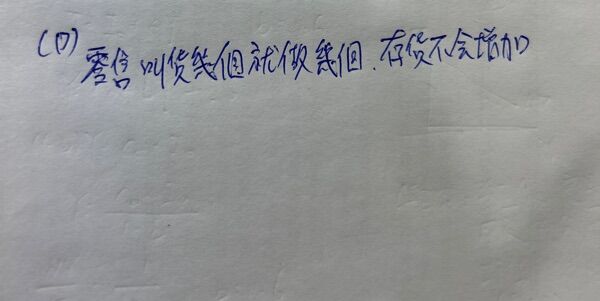 (D) 零售叫货幾個就做幾個、存货不会增加